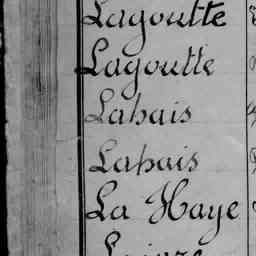 Lagoutte
Lagoutte
Lahais
Lahais
La Haye